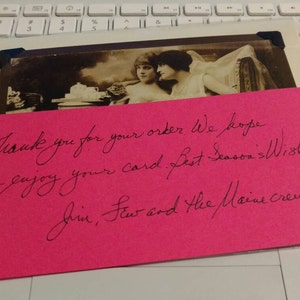 Thank you for your order We hope
enjoy your card. Best Season's Wish
Jim, Few and the Maine crew